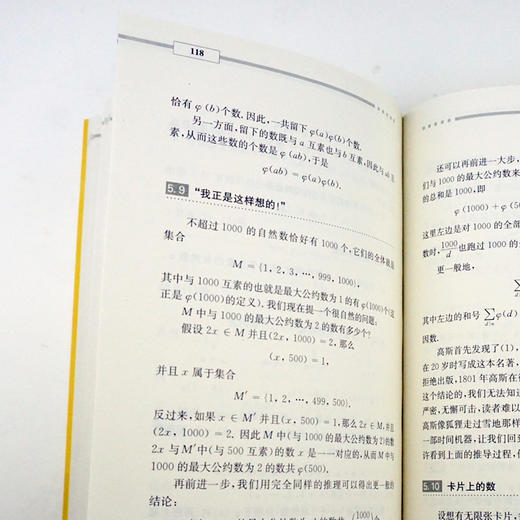 118
恰有 φ(b)个数. 因此, 一共留下 φ(a)φ(b)个数.
另一方面, 留下的数既与 a 互素也与 b 互素, 因此与 ab 互
素, 从而这些数的个数是 φ(ab), 于是
φ(ab) = φ(a)φ(b).
5.9 “我正是这样想的!”
不超过 1000 的自然数恰好有 1000 个, 它们的全体就是
集合
M = {1, 2, 3, …, 999, 1000},
其中与 1000 互素的也就是最大公约数为 1 的有 φ(1000)个(这
正是 φ(1000)的定义). 我们现在提一个很自然的问题:
M 中与 1000 的最大公约数为 2 的数有多少个?
假设 2x ∈ M 并且(2x, 1000) = 2, 那么
(x, 500) = 1,
并且 x 属于集合
M′ = {1, 2, …, 499, 500}.
反过来, 如果 x ∈ M′ 并且(x, 500) = 1, 那么 2x ∈ M, 并且
(2x, 1000) = 2. 因此 M 中(与 1000 的最大公约数为 2)的数
2x 与 M′中(与 500 互素)的数 x 是一一对应的, 从而 M 中与
1000 的最大公约数为 2 的数共 φ(500).
再前进一步, 我们用完全同样的推理可以得出更一般的
结论:
还可以再前进一步,
们与 1000 的最大公约数来
的总和是 1000, 即
φ(1000) + φ(50
这里左边是对 1000 的全部
数时, 1000/d 也跑过 1000 的全
更一般地,
其中左边的和号 ∑φ(d)
d|n
因数.
高斯首先发现了(1),
在 20 岁时写成这本名著,
拒绝出版, 1801 年高斯在
这个结论的, 我们无法知道
严密, 无懈可击, 读者难以
高斯像狐狸走过雪地那样
一部时间机器, 让我们回到
许看到上面的推导过程,
5.10 卡片上的数
设想有无限张卡片,